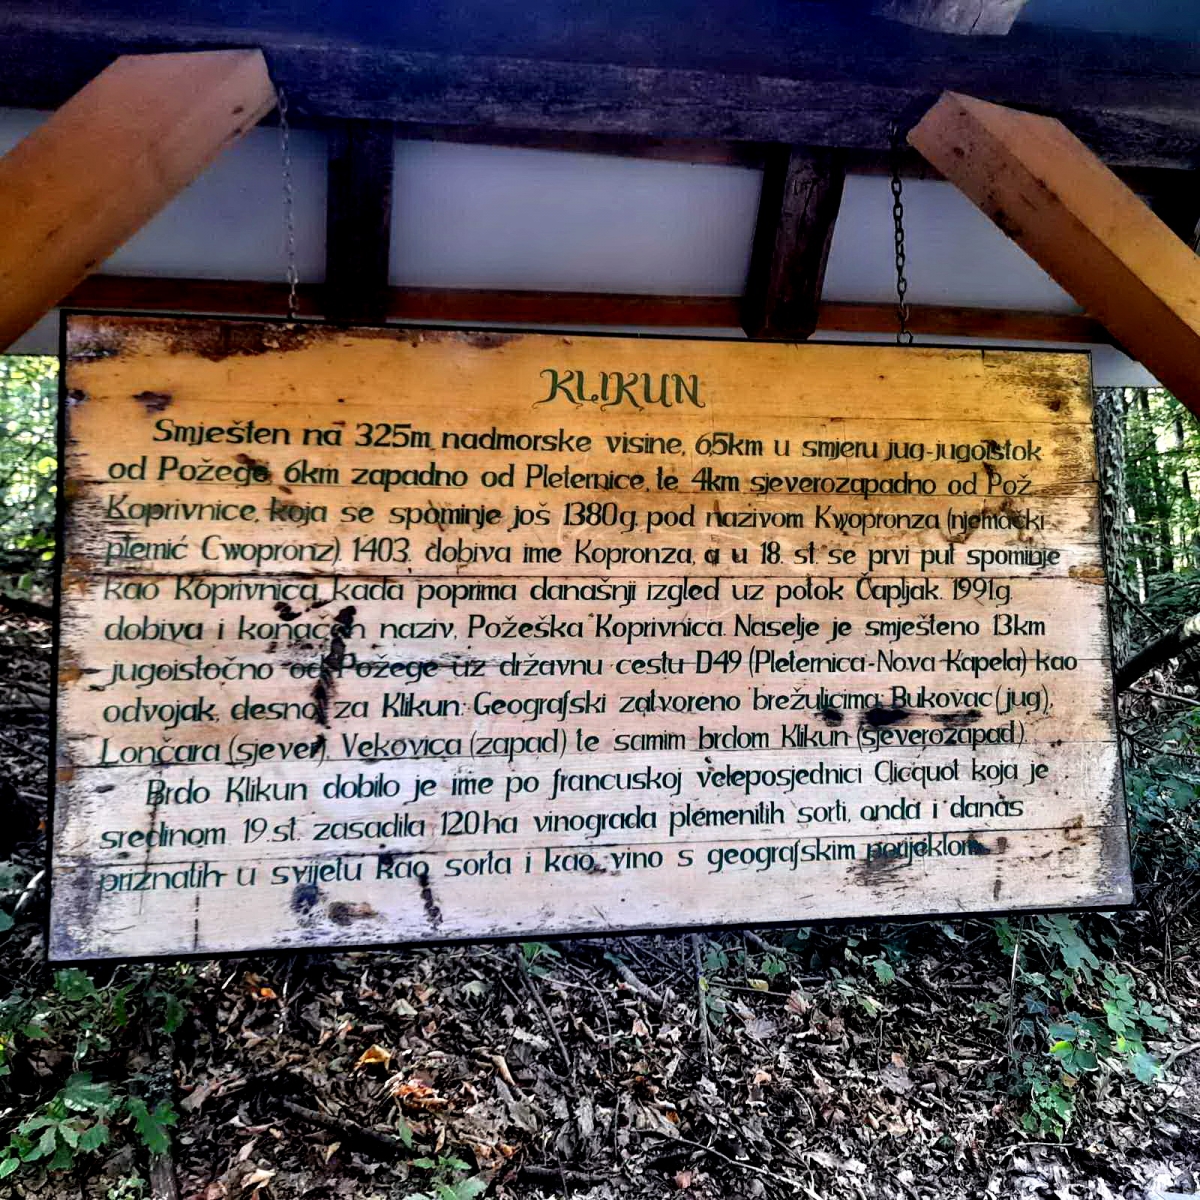 KLIKUN
Smješten na 325m nadmorske visine, 6,5km u smjeru jug-jugoistok
od Požege, 6km zapadno od Pleternice, te 4km sjeverozapadno od Pož.
Koprivnice, koja se spominje još 1380g. pod nazivom Kwopronza (njemački
plemić Cwopronz). 1403. dobiva ime Kopronza, a u 18. st. se prvi put spominje
kao Koprivnica, kada poprima današnji izgled uz potok Čapljak. 1991g.
dobiva i konačan naziv, Požeška Koprivnica. Naselje je smješteno 13km
jugoistočno od Požege uz državnu cestu D49 (Pleternica-Nova Kapela) kao
odvojak, desno, za Klikun. Geografski zatvoreno brežuljcima: Bukovac (jug),
Lončara (sjever), Vekovica (zapad) te samim brdom Klikun (sjeverozapad).
Brdo Klikun dobilo je ime po francuskoj veleposjednici Clicquot koja je
sredinom 19.st. zasadila 120ha vinograda plemenitih sorti, onda i danas
priznatih u svijetu kao sorta i kao vino s geografskim porijeklom.